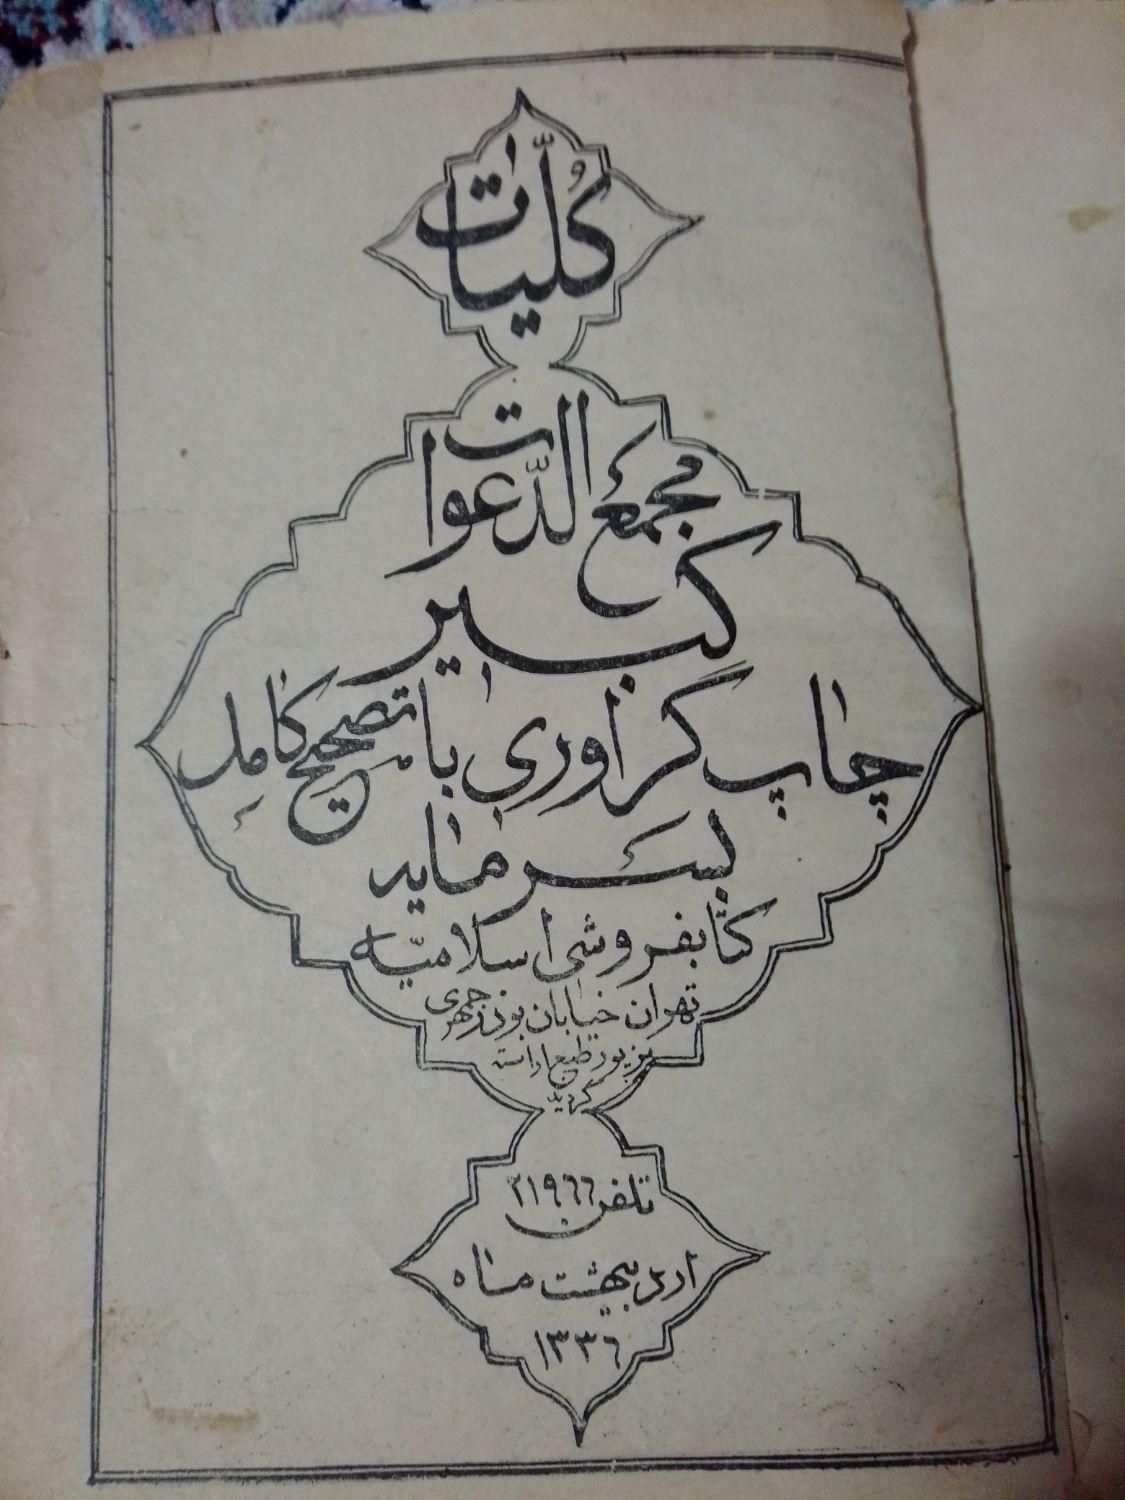 کُلّیات
مجمعَ الدّعوات
کبیر
چاپ گراوری با تصحیح کامِل
بسَرمایه
کتابفروشی اسلامیّه
تهران خیابان بوذرجمهری
بزیور طبع اراسته
گردید
تلفن ۲۱۹۶۶
اردیبهشت ماه
۱۳۳۶